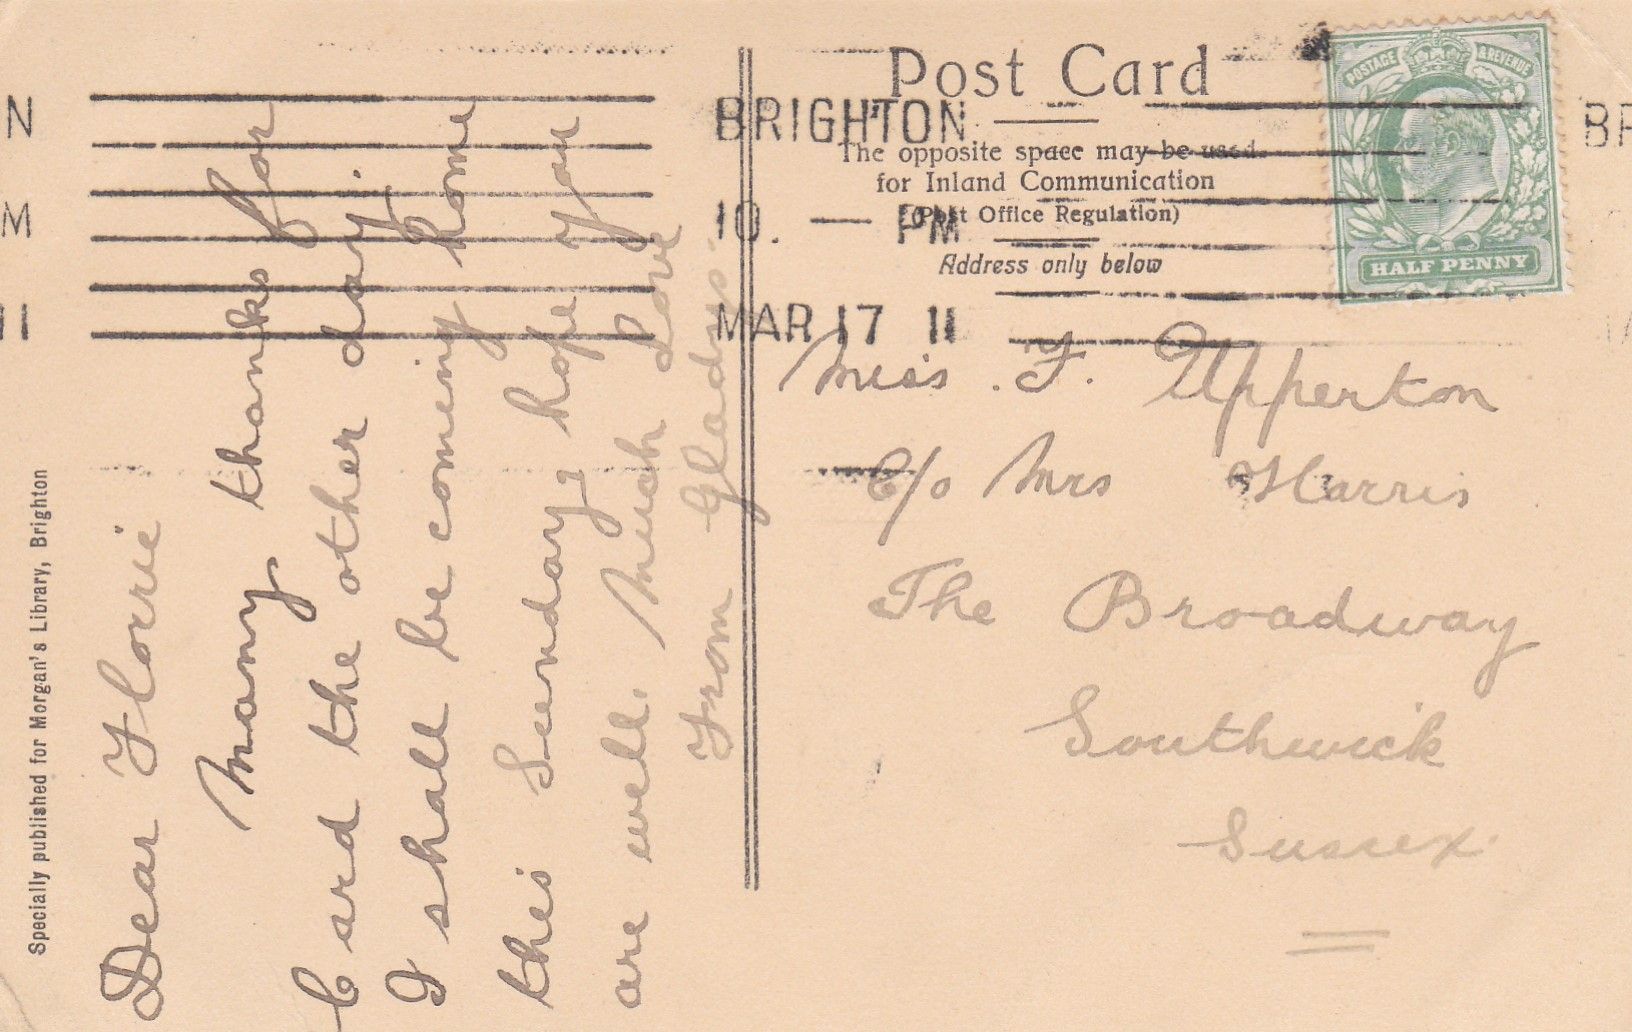 Specially published for Morgan's Library, Brighton
Dear Florrie
Many thanks for
Card the other day.
I shall be coming home
this Sunday, hope you
are well. Much Love
From Gladys.
Post Card
The opposite space may be used
for Inland Communication
(Post Office Regulation)
Address only below
BRIGHTON
10. — PM
MAR 17 11
POSTAGE & REVENUE
HALF PENNY
Miss. F. Upperton
C/o Mrs Harris
The Broadway
Southwick
Sussex.
N
M
11
BR